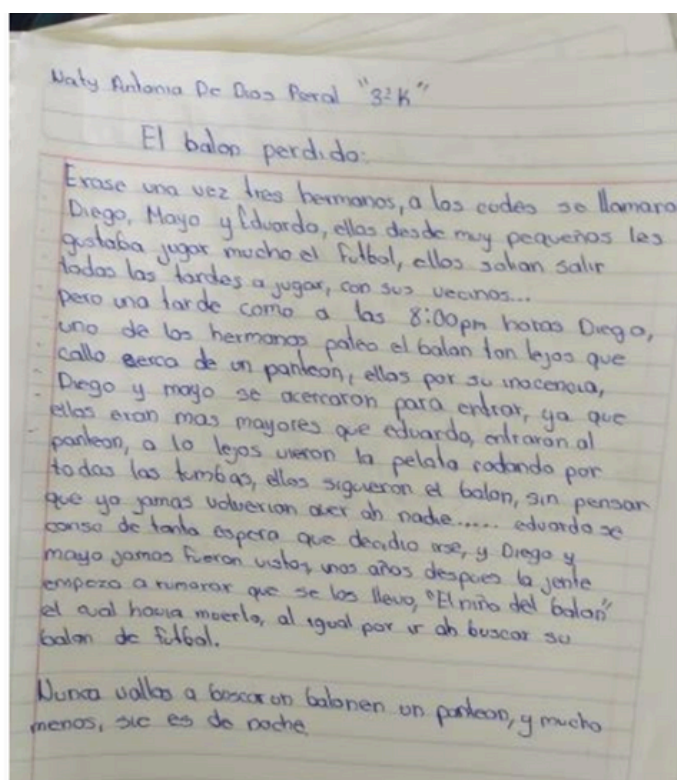 Naty Antonia De Dios Peral "3ºK"
El balon perdido:
Erase una vez tres hermanos, a los cudes se llamaro
Diego, Mayo y Eduardo, ellos desde muy pequeños les
gustaba jugar mucho el futbol, ellos solian salir
todas las tardes a jugar, con sus vecinos...
pero una tarde como a las 8:00pm horas Diego,
uno de los hermanos pateo el balon tan lejos que
callo serca de un panteon, ellos por su inocencia,
Diego y mayo se acercaron para entrar, ya que
ellos eran mas mayores que eduardo, entraron al
panteon, a lo lejos vieron la pelota rodando por
todas las tumbas, ellos siguieron el balon, sin pensar
que ya jamas volverian aver ah nadie...... eduardo se
canso de tanta espera que decidio irse, y Diego y
mayo jamas fueron vistos, unos años despues la jente
empezo a rumorar que se los llevo, "El niño del balon"
el cual havia muerto, al igual por ir ah buscar su
balon de futbol.
Nunca vallas a buscar un balonen un panteon, y mucho
menos, sie es de noche.